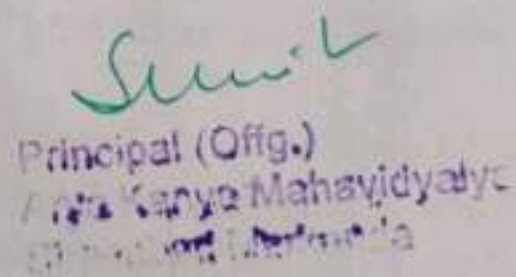 Sunil
Principal (Offg.)
Arya Kanya Mahavidyalya